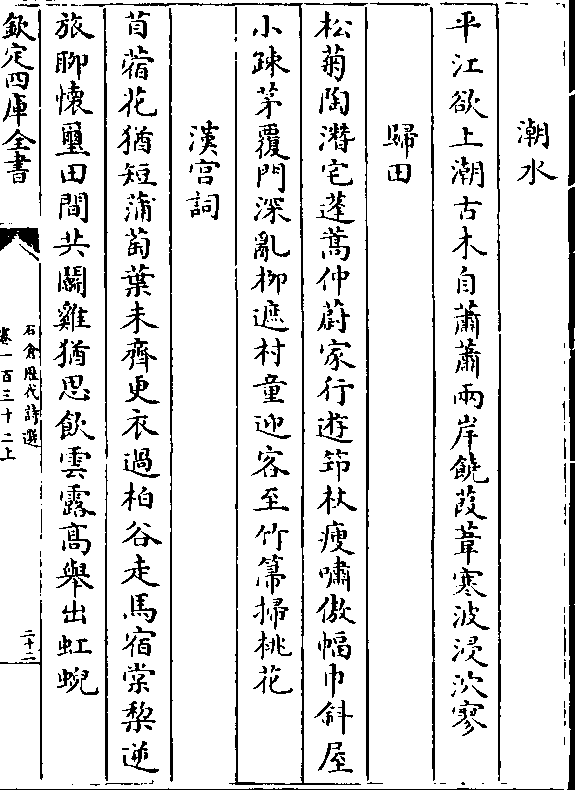 潮水
平江欲上潮古木自蕭蕭兩岸饒葭葦寒波浸泬寥
歸田
松菊陶潛宅蓬蒿仲蔚家行遊筇杖瘦嘯傲幅巾斜屋
小疎茅覆門深亂柳遮村童迎客至竹箒掃桃花
漢宫詞
苜蓿花猶短蒲萄葉未齊更衣過柏谷走馬宿棠棃逆
旅聊懷璽田間共鬭雞猶思飲雲露髙舉出虹蜺
欽定四庫全書
石倉歴代詩選
卷一百三十二上
二十二